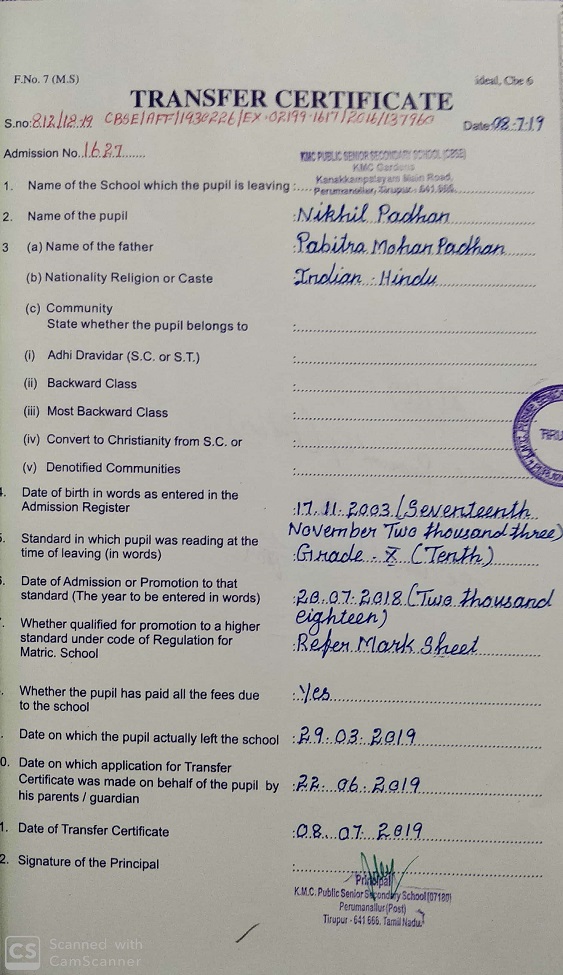 F.No. 7 (M.S)
ideal, Cbe 6
TRANSFER CERTIFICATE
S.no: 812/18-19 CBSE/AFF/1930226/EX-02199-1617/2016/137960 Date: 08-7-19
Admission No. 1627
KMC PUBLIC SENIOR SECONDARY SCHOOL (CBSE)
KMC Gardens
1. Name of the School which the pupil is leaving : Kanakkampalayam Main Road,
Perumanallur, Tirupur - 641 666.
2. Name of the pupil : Nikhil Padhan
3 (a) Name of the father : Pabitra Mohan Padhan
(b) Nationality Religion or Caste : Indian - Hindu
(c) Community
State whether the pupil belongs to :
(i) Adhi Dravidar (S.C. or S.T.) :
(ii) Backward Class :
(iii) Most Backward Class :
(iv) Convert to Christianity from S.C. or :
(v) Denotified Communities :
Date of birth in words as entered in the
Admission Register : 17.11.2003 (Seventeenth
November Two thousand three)
Standard in which pupil was reading at the
time of leaving (in words) Grade - X (Tenth)
Date of Admission or Promotion to that
standard (The year to be entered in words) : 20.07.2018 (Two thousand
eighteen)
Whether qualified for promotion to a higher
standard under code of Regulation for : Refer Mark Sheet
Matric. School
Whether the pupil has paid all the fees due : Yes
to the school
Date on which the pupil actually left the school : 29.03.2019
0. Date on which application for Transfer
Certificate was made on behalf of the pupil by : 22.06.2019
his parents / guardian
1. Date of Transfer Certificate : 08.07.2019
2. Signature of the Principal :
Principal
K.M.C. Public Senior Secondary School (07180)
Perumanallur (Post)
Tirupur - 641 666. Tamil Nadu.
CS Scanned with
CamScanner